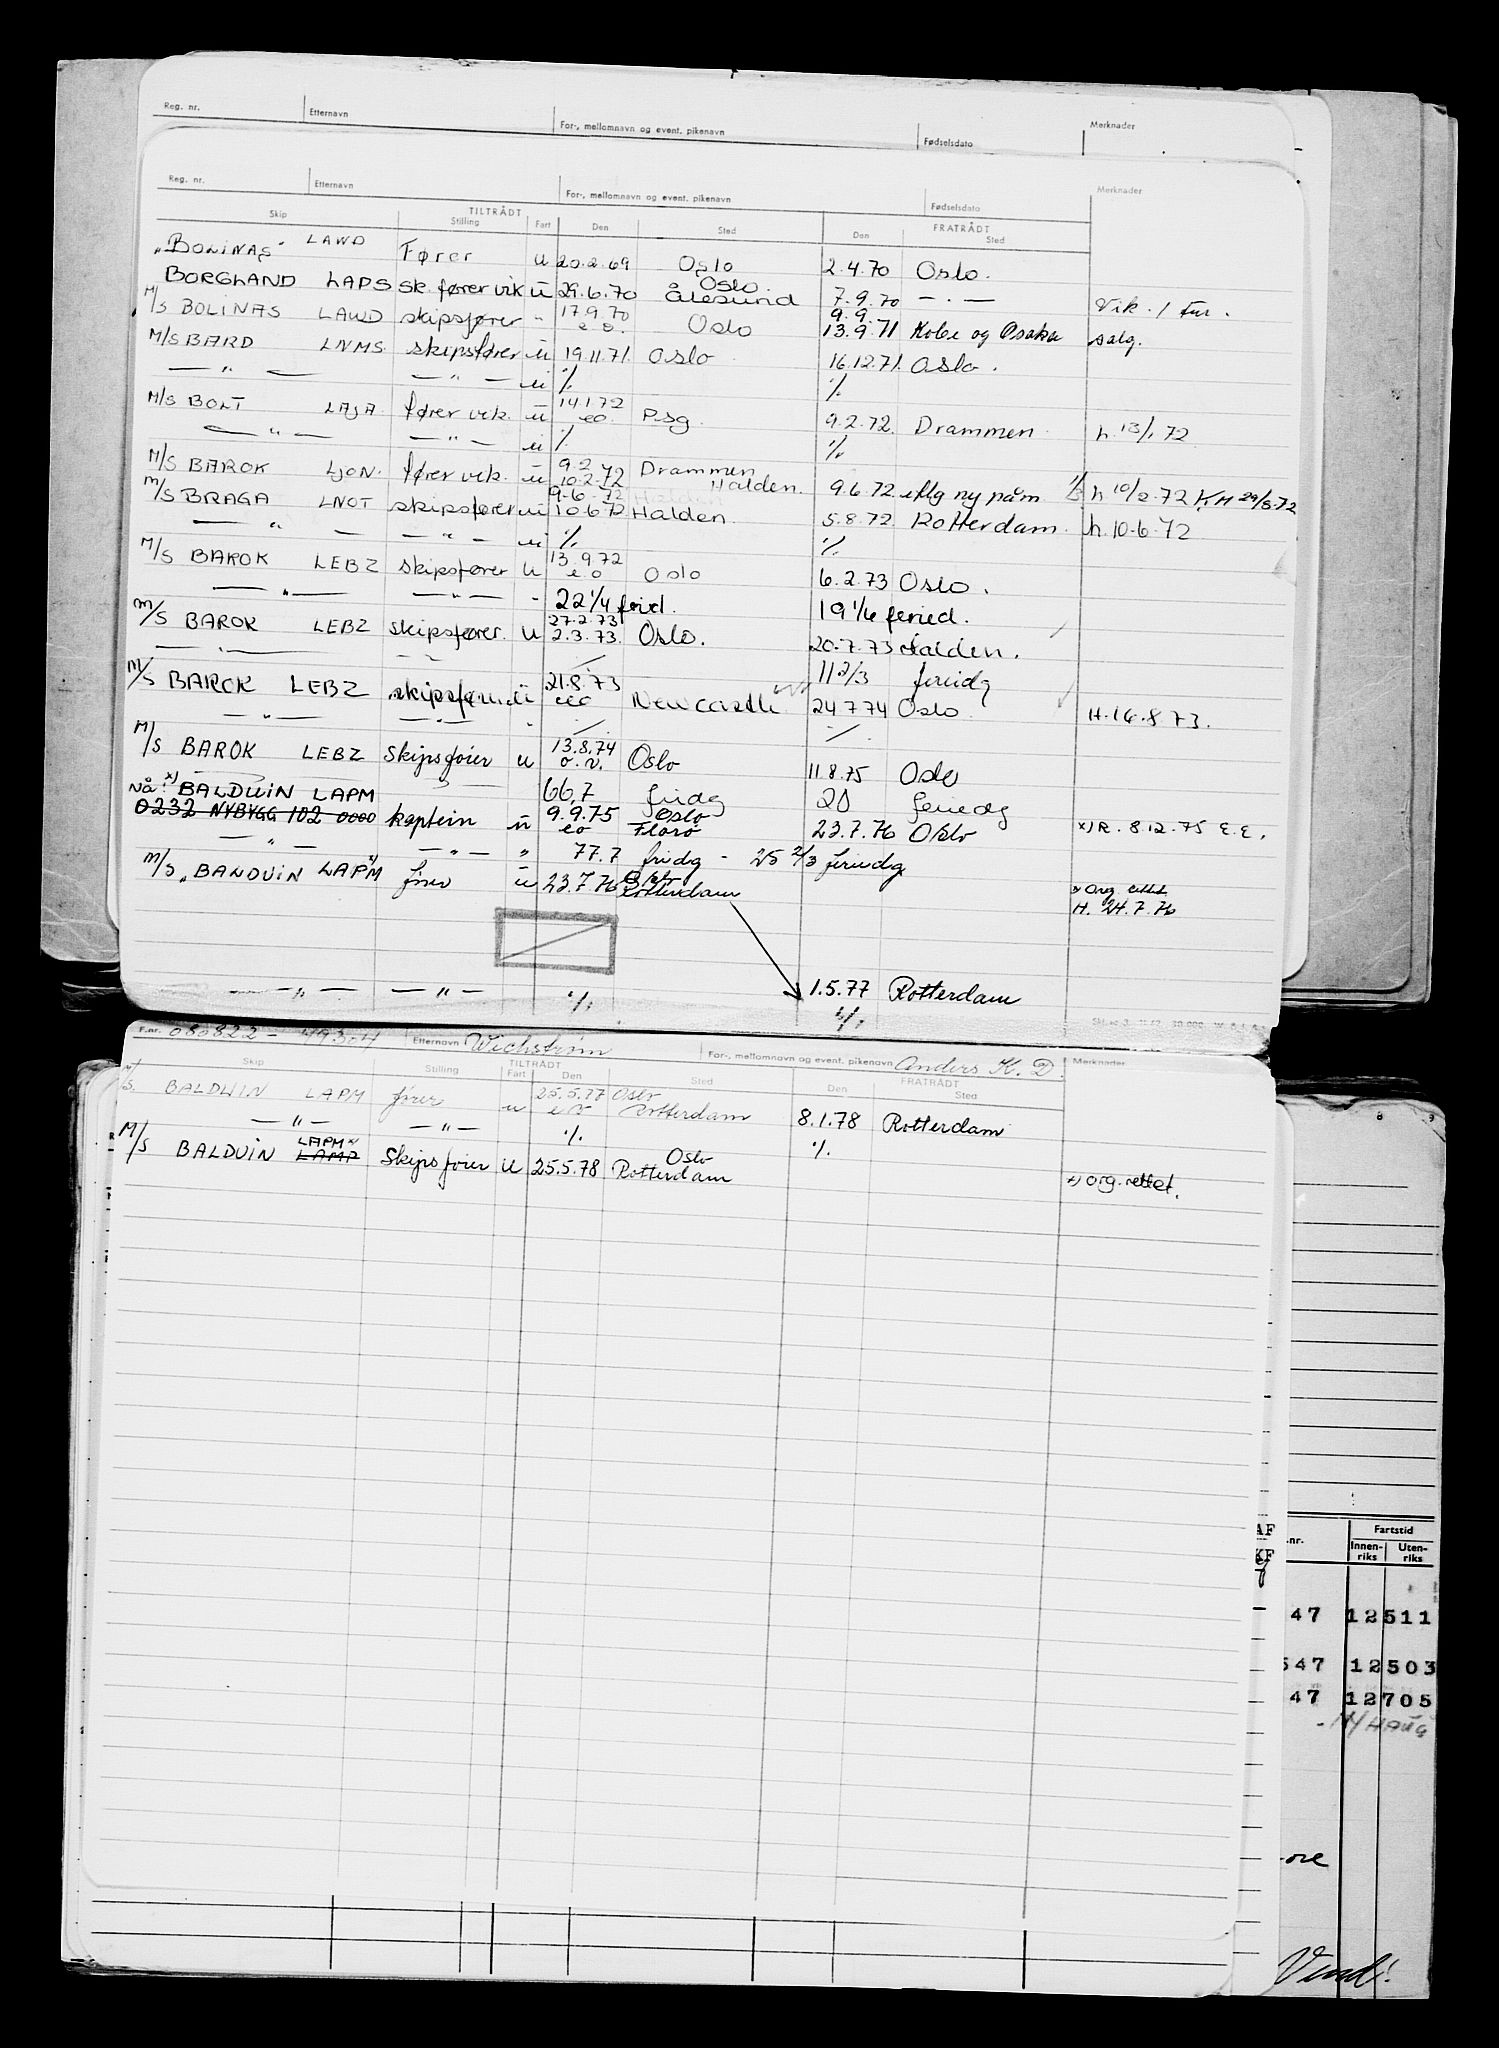 Reg. nr. Etternavn For-, mellomnavn og event. pikenavn Fødselsdato Merknader
Reg. nr. Etternavn For-, mellomnavn og event. pikenavn Fødselsdato Merknader
TILTRÅDT FRATRÅDT
Skip Stilling Fart Den Sted Den Sted
"BOLINAS" LAWD Fører u 20.2.69 Oslo 2.4.70 Oslo.
BORGLAND LAPS sk.fører vik u 29.6.70 Oslo. Ålesund 7.9.70 — . — Vik. 1 tur.
M/S BOLINAS LAWD skipsfører - 17.9.70 e o. Oslo 9.9. 13.9.71 Kobe og Osaka salg.
M/S BARD LNMS. skipsfører u 19.11.71 Oslo 16.12.71. Oslo.
— " — — " — u % %
M/S BOLT LAJA. fører vik. u 14.1.72 eo. Psg. 9.2.72. Drammen h. 13/1 72
— " — — " — u % %
M/S BAROK LJON. fører vik. u 9.2.72 10.2.72 Drammen Halden. 9.6.72 eflg ny påm h 10/2.72 K.H 29/8.72
M/S BRAGA LNOT skipsfører u 9.6.72 10.6.72 Halden. 5.8.72 Rotterdam. h. 10.6.72
— " — — " — u % %
M/S BAROK LEBZ skipsfører u 13.9.72 e o Oslo 6.2.73 Oslo.
— " — — " — - 22 1/4 frid. 19 1/6 feried.
M/S BAROK LEBZ skipsfører. u 27.2.73 2.3.73. Oslo. 20.7.73 Halden.
— " — 11 2/3 feriedg
M/S BAROK LEBZ skipsfører u 21.8.73 eo Newcastle 24.7.74 Oslo H. 16.8.73.
— " — — " —
M/S BAROK LEBZ Skipsfører u 13.8.74 o.v. Oslo 11.8.75 Oslo
66,7 fridg 20 feriedg
Nå: x) BALDUIN LAPM
0232 NYBYGG 102 0000 kaptein u 9.9.75 eo Oslo Florø 23.7.76 Oslo x) R. 8.12.75 E.E.
— " — — " — " 77.7 fridg - 25 2/3 feriedg
M/S "BANDUIN LAPM x) fører u 23.7.76 Oslo Rotterdam x) Org. rettet H. 24.7.76
1.5.77 Rotterdam
— " — — " — % %
F.nr. 080822 - 49304 Etternavn Wichstrøm For-, mellomnavn og event. pikenavn Anders K. D. Merknader
TILTRÅDT FRATRÅDT
Skip Stilling Fart Den Sted Den Sted
M/S. BALDWIN LAPM fører u 25.5.77 e v Oslo Rotterdam 8.1.78 Rotterdam
— " — — " — % %
M/S BALDUIN LAPM x) LAMP Skipsfører u 25.5.78 Oslo Rotterdam
x) org. rettet.
8 9
AF
KF
.nr. Fartstid
Innen-riks Uten-riks
47 12511
547 12503
47 12705
NYHAUG
-ore
Vend!